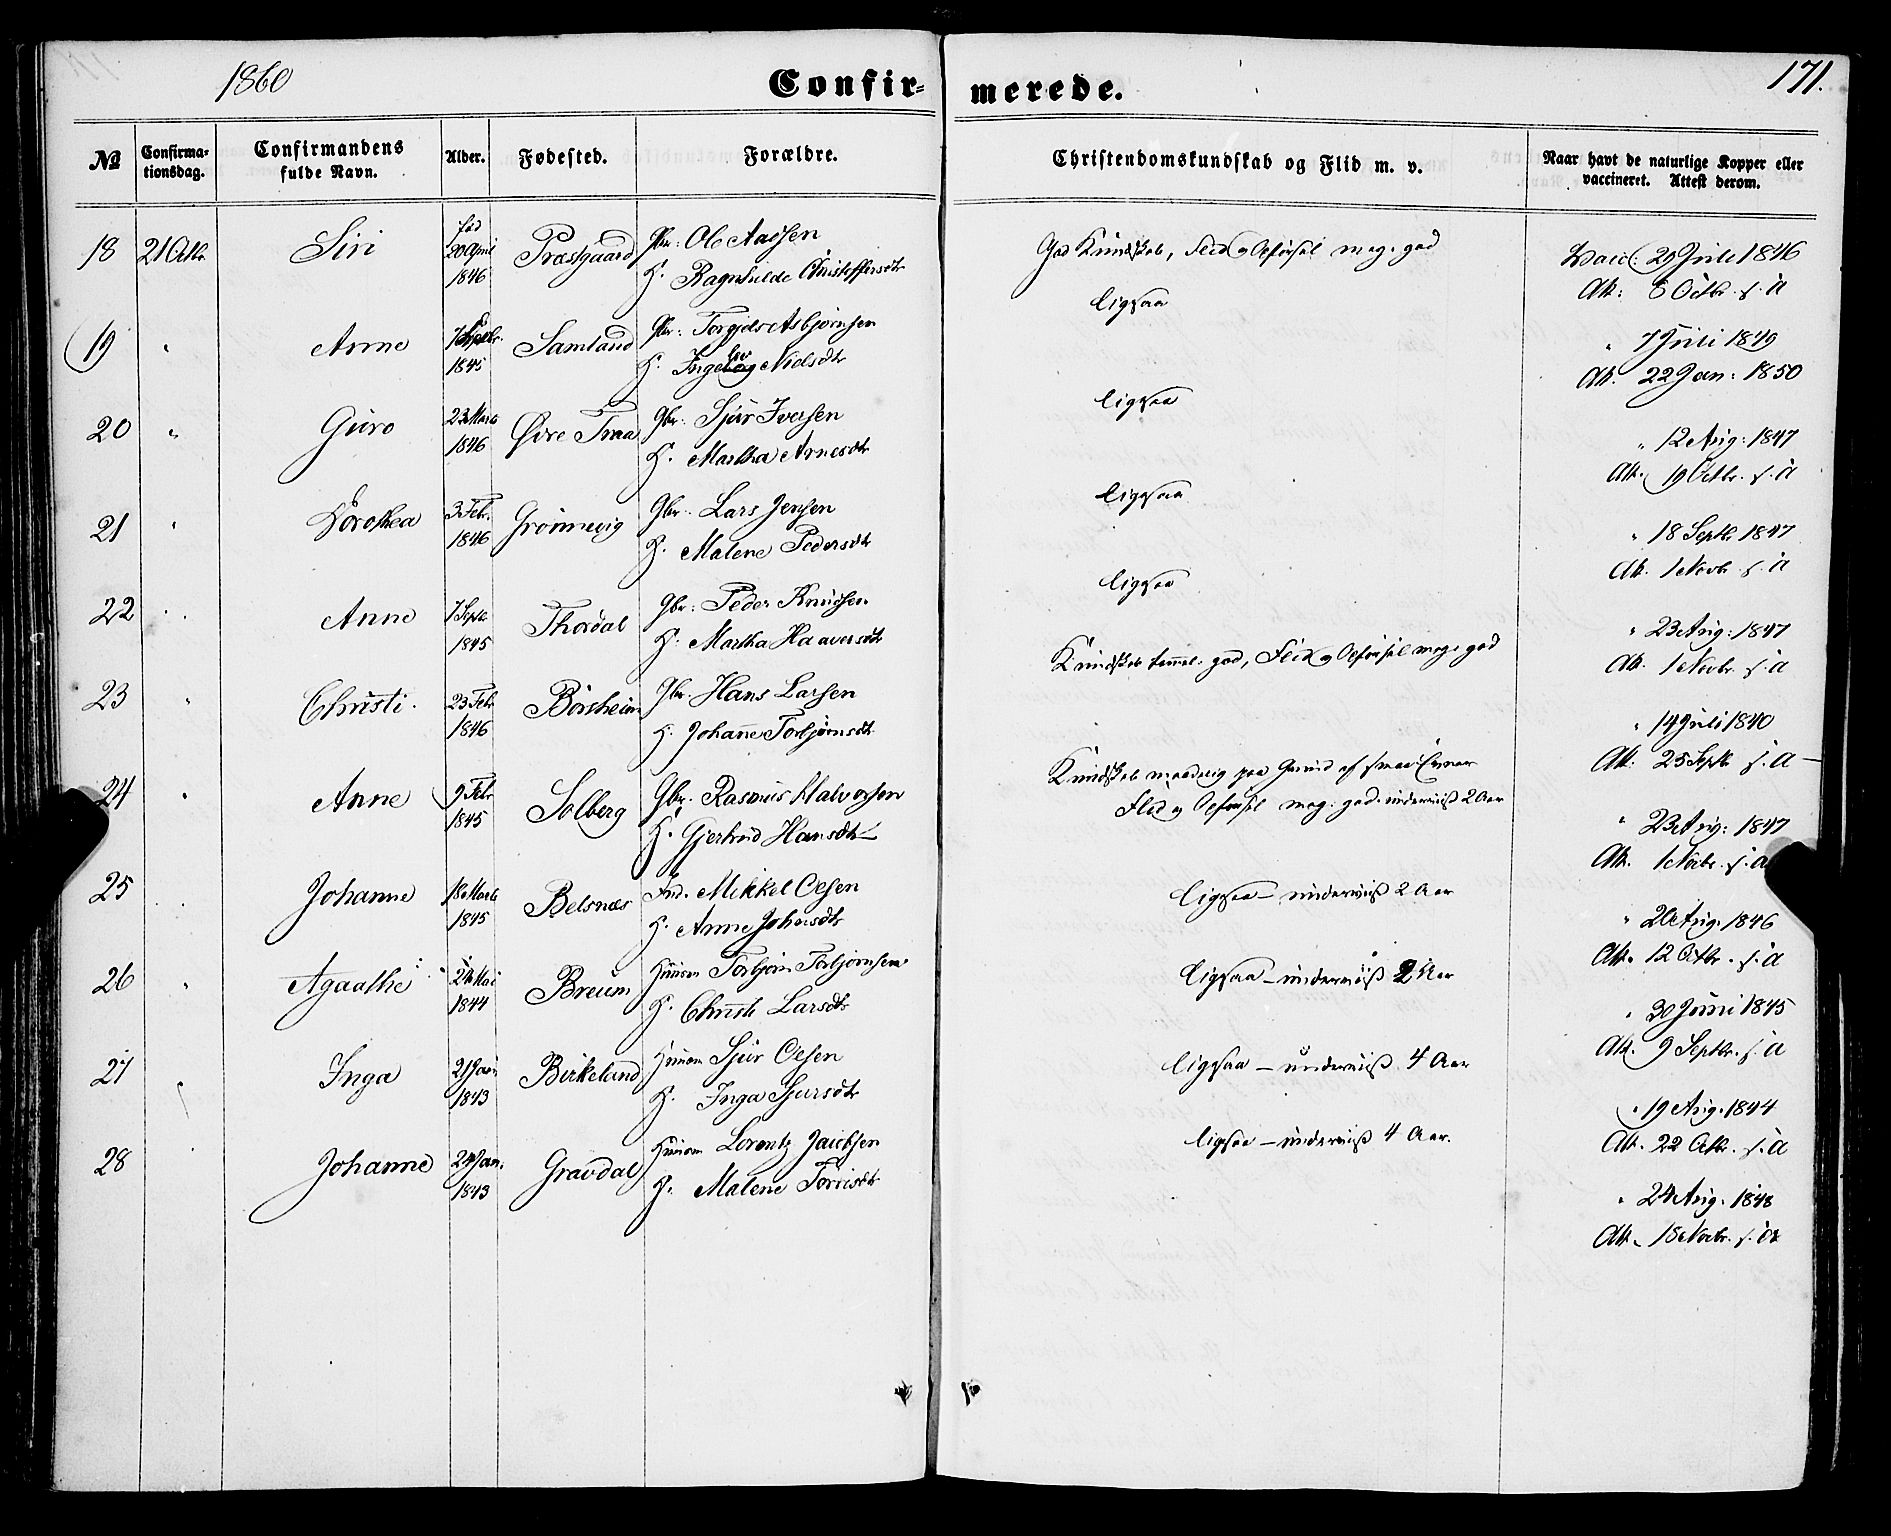 1860
Confir-
merede.
171.
№
Confirma-
tionsdag.
Confirmandens
fulde Navn.
Alder.
Fødested.
Forældre.
Christendomskundskab og Flid m. v.
Naar havt de naturlige Kopper eller
vaccineret. Attest derom.
18 21 Octbr Siri
fød
20 April
1846
Præstgaard
Gbr: Ole Aaesen
H. Ragnhilde Christoffersdtr
God Kundskab, Flid og Opførsel meg. god
Vacc: 29 Juli 1846
Att: 6 Octbr. s. a
19 " Anne
1845
Samland
Gbr: Torgils Asbjørnsen
H. Ingeborg Nielsdtr
ligesaa
" 7 Juli 1849
Att. 22 Jan: 1850
20 " Guro
23 Marts
1846
Øvre Traa
Gbr: Sjur Iversen
H. Martha Arnesdtr
ligesaa
" 12 Aug: 1847
Att. 19 Octbr. s. a
21 " Dorothea
3 Febr.
1846
Grønnevig
Gbr. Lars Jensen
H. Malene Pedersdtr
ligesaa
" 18 Septr. 1847
Att. 1 Novbr. s. a
22 " Anne
7 Septr
1845
Thordal
Gbr: Peder Knudsen
H. Martha Haaversdtr
ligesaa
" 23 Aug: 1847
Att. 1 Novbr. s. a
23 " Christi
23 Febr
1846
Børsheim
Gbr. Hans Larsen
H. Johanne Torbjørnsdtr
Kundskab temmel. god, Flid og Opførsel meg. god
" 14 Juli 1840
Att: 25 Septbr s. a —
24 " Anne
9 Febr
1845
Solberg
Gbr. Rasmus Halvorsen
H. Gjertrud Hansdtr
Kundskab maadelig paa Grund af smaa Evner
Flid og Opførsel meg. god. underviist 2 Aar
" 23 Aug: 1847
Att. 1 Novbr. s. a
25 Johanne
18 Marts
1845
Belsnæs
Ind. Mikkel Olsen
H. Anne Johnsdtr
ligesaa — underviist 2 Aar
" 26 Aug. 1846
Att. 12 Octbr. s. a
26 " Agaathe
24 Mai
1844
Breum
Huusm Torbjørn Torbjørnsen
H. Christi Larsdtr
ligesaa — underviist 2 Aar
" 30 Juni 1845
Att. 9 Septbr. s. a
27 " Inga
21 Jan
1843
Birkeland
Huusm Sjur Olsen
H. Inga Sjursdtr
ligesaa — underviist 4 Aar
" 19 Aug. 1844
Att. 22 Octbr. s. a
28 Johanne
24 Jan.
1843
Gravdal
Huusm Lorentz Jacobsen
H. Malene Torrisdtr
ligesaa — underviist 4 Aar.
" 24 Aug. 1848
Att. 15 Novbr. s. a